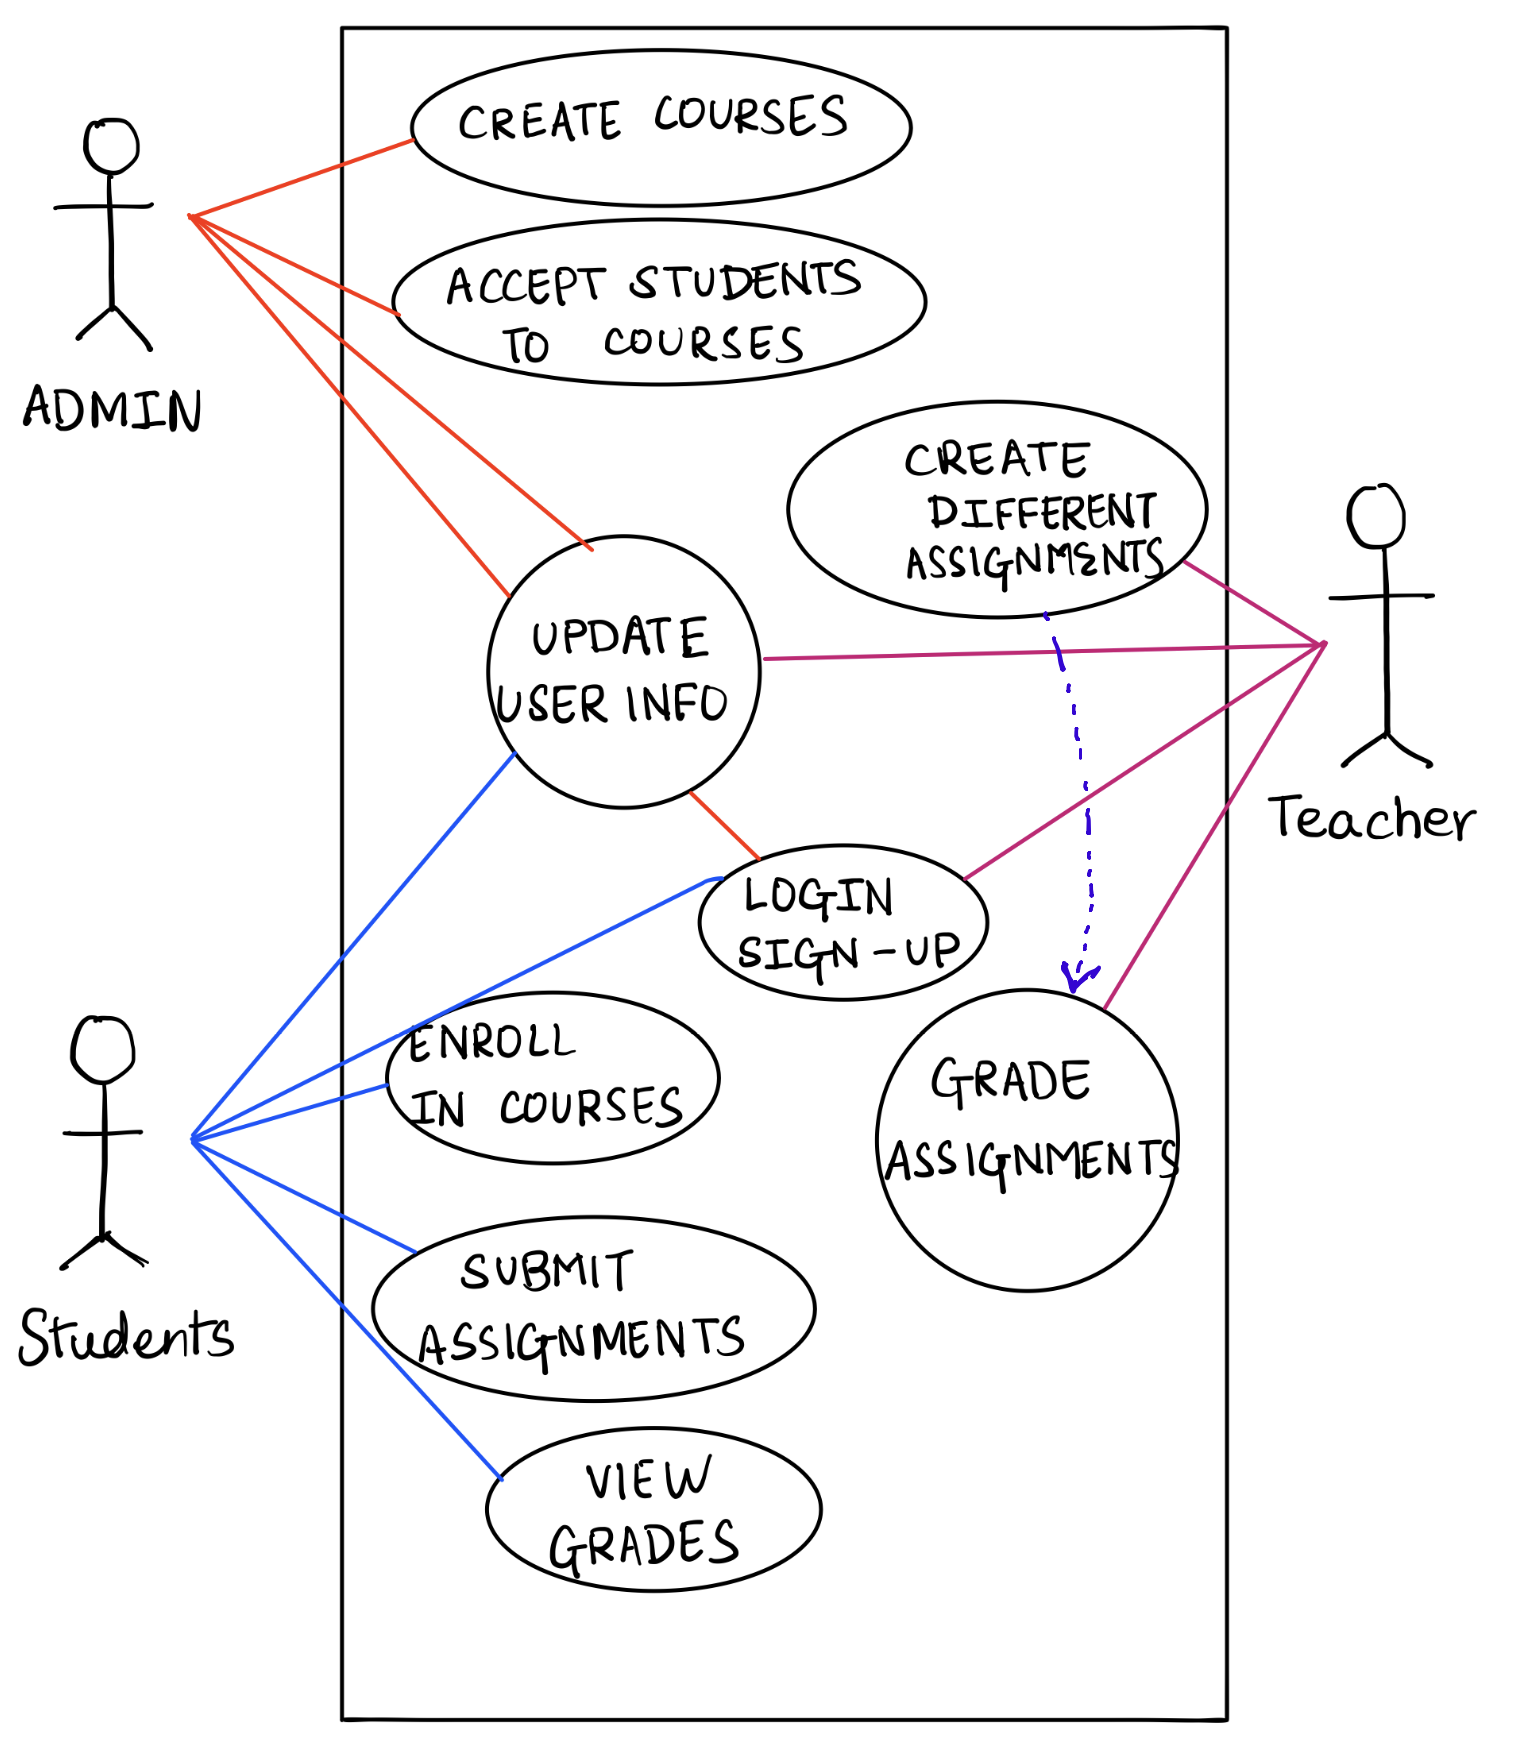 CREATE COURSES
ACCEPT STUDENTS
TO COURSES
ADMIN
CREATE
DIFFERENT
ASSIGNMENTS
UPDATE
USER INFO
Teacher
LOGIN
SIGN-UP
ENROLL
IN COURSES
GRADE
ASSIGNMENTS
Students
SUBMIT
ASSIGNMENTS
VIEW
GRADES